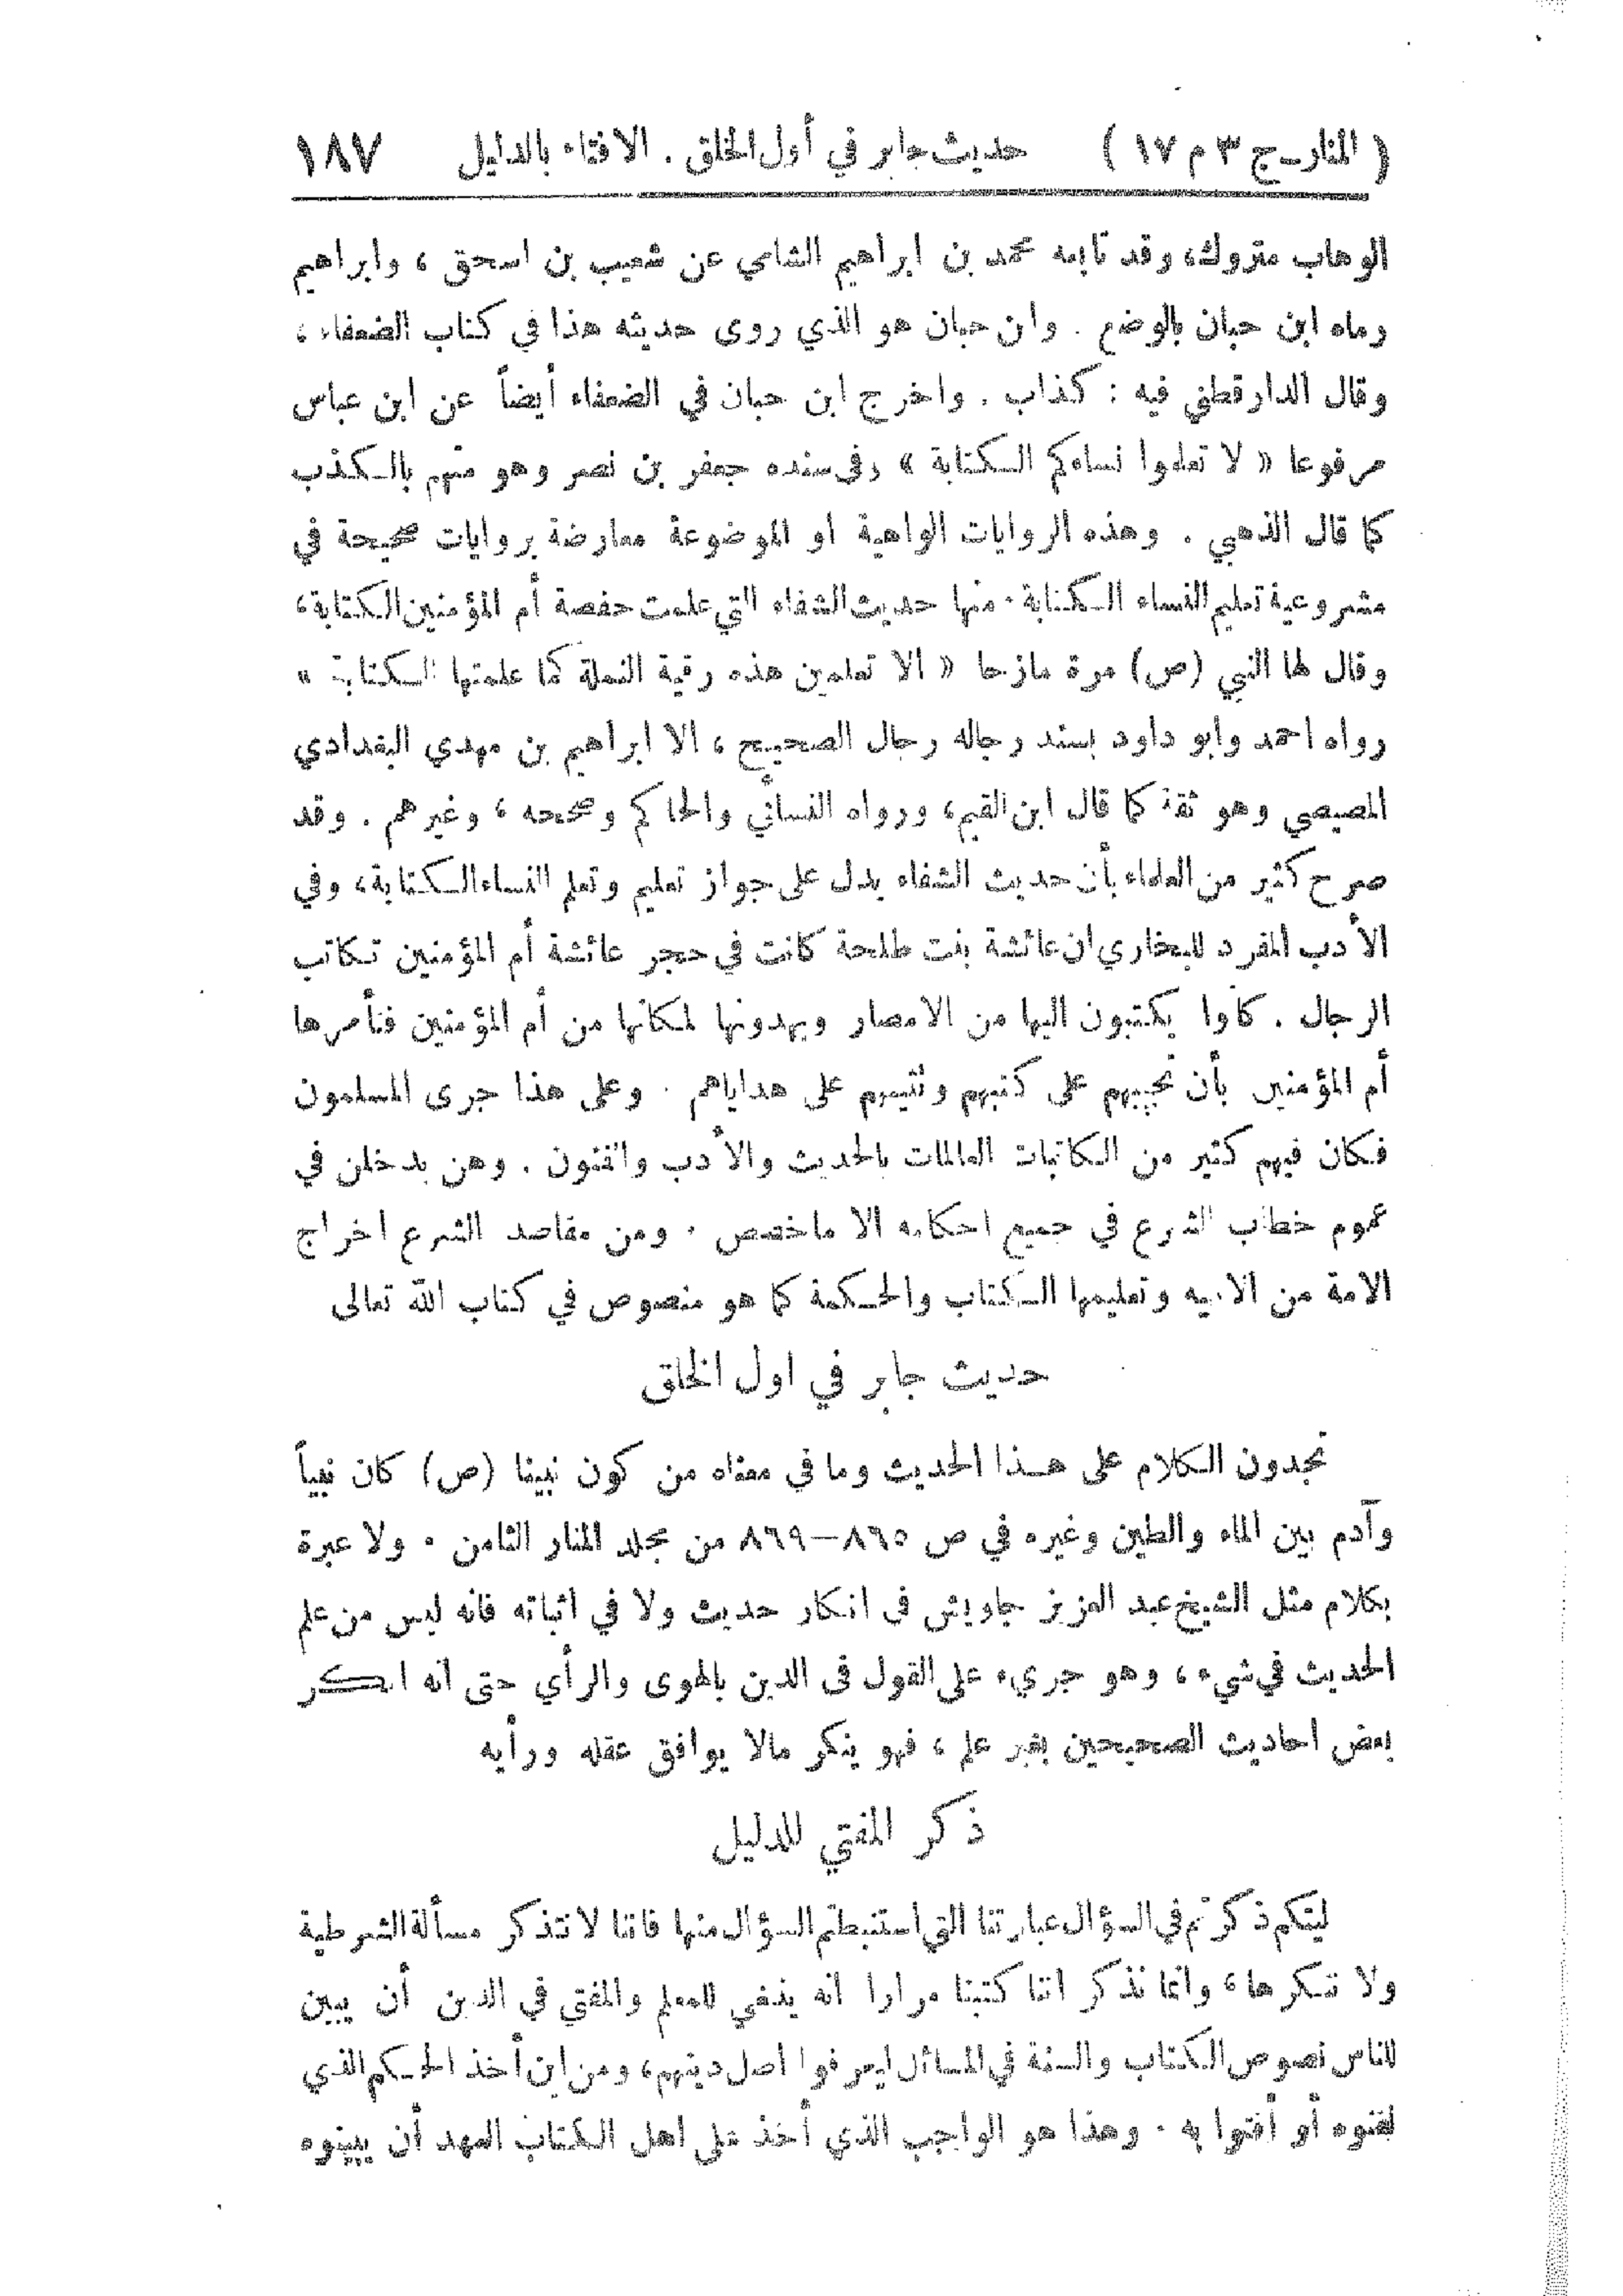 ( المنار ـ ج ٣ م ١٧ ) حديث جابر في أول الخلق . الافتاء بالدليل ١٨٧
الوهاب متروك، وقد تابعه محمد بن ابراهيم الشامي عن شعيب بن اسحق ، وابراهيم
رماه ابن حبان بالوضع . وابن حبان هو الذي روى حديثه هذا في كتاب الضعفاء ،
وقال الدارقطني فيه : كذاب . واخرج ابن حبان في الضعفاء أيضاً عن ابن عباس
مرفوعا « لا تعلموا نساءكم الكتابة » وفي سنده جعفر بن نصر وهو متهم بالكذب
كما قال الذهبي . وهذه الروايات الواهية او الموضوعة معارضة بروايات صحيحة في
مشروعية تعليم النساء الكتابة . منها حديث الشفاء التي علمت حفصة أم المؤمنين الكتابة،
وقال لها النبي (ص) مرة مازحا « الا تعلمين هذه رقية النملة كما علمتها الكتابة »
رواه احمد وابو داود بسند رجاله رجال الصحيح ، الا ابراهيم بن مهدي البغدادي
المصيصي وهو ثقة كما قال ابن القيم، ورواه النسائي والحاكم وصححه ، وغيرهم . وقد
صرح كثير من العلماء بأن حديث الشفاء يدل على جواز تعليم وتعلم النساء الكتابة، وفي
الأدب المفرد للبخاري ان عائشة بنت طلحة كانت في حجر عائشة أم المؤمنين تكاتب
الرجال . كانوا يكتبون اليها من الامصار ويهدونها لمكانها من أم المؤمنين فتأمرها
أم المؤمنين بأن تجيبهم على كتبهم وتثيبهم على هداياهم . وعلى هذا جرى المسلمون
فكان فيهم كثير من الكاتبات العالمات بالحديث والأدب والفنون . وهن يدخلن في
عموم خطاب الشرع في جميع احكامه الا ماخصص . ومن مقاصد الشرع اخراج
الامة من الامية وتعليمها الكتاب والحكمة كما هو منصوص في كتاب الله تعالى
حديث جابر في اول الخلق
تجدون الكلام على هذا الحديث وما في معناه من كون نبينا (ص) كان نبياً
وآدم بين الماء والطين وغيره في ص ٨٦٥—٨٦٩ من مجلد المنار الثامن . ولا عبرة
بكلام مثل الشيخ عبد العزيز جاويش في انكار حديث ولا في اثباته فانه ليس من علم
الحديث في شيء ، وهو جريء على القول في الدين بالهوى والرأي حتى انه انكر
بعض احاديث الصحيحين بغير علم ، فهو ينكر مالا يوافق عقله ورأيه
ذكر المفتي للدليل
ليتكم ذكرتم في السؤال عبارتنا التي استنبطتم السؤال منها فاننا لا نتذكر مسألة الشرطية
ولا ننكرها، وانما نذكر اننا كتبنا مرارا انه ينبغي للمعلم والمفتي في الدين أن يبين
للناس نصوص الكتاب والسنة في المسائل ليعرفوا اصل دينهم، ومن اين أخذ الحكم الذي
لقنوه أو أفتوا به . وهذا هو الواجب الذي أخذ على اهل الكتاب العهد أن يبينوه